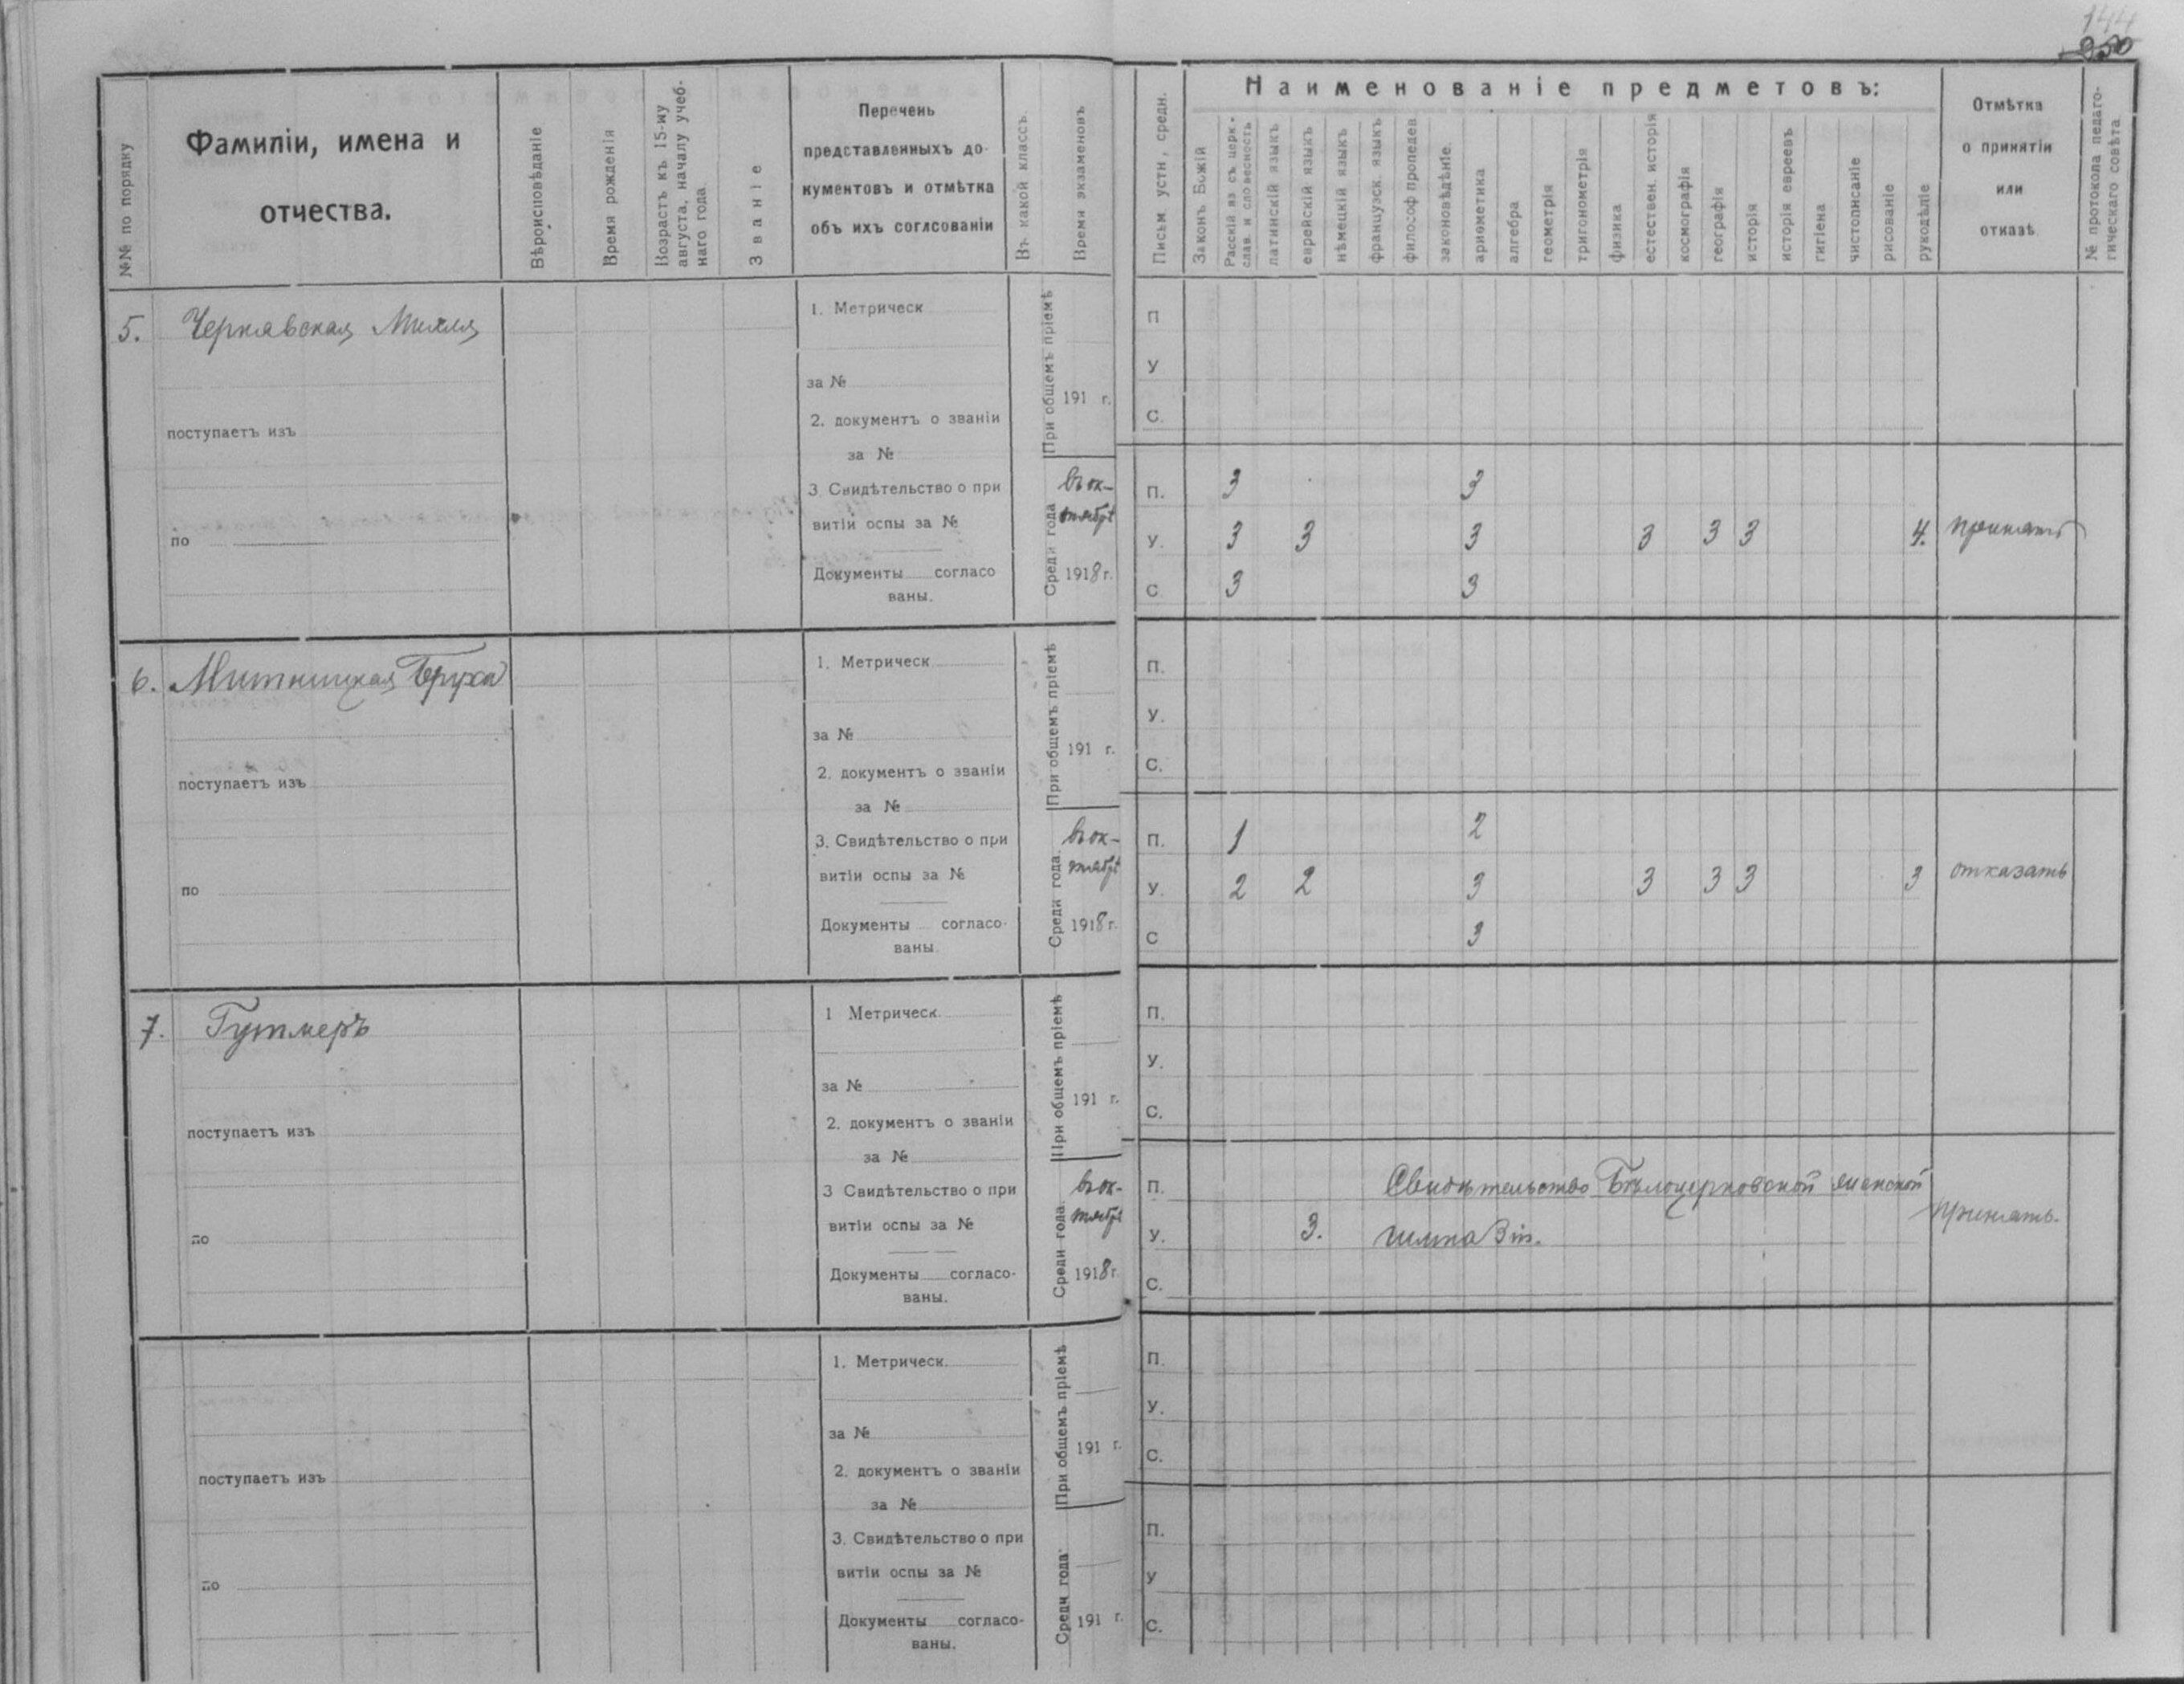 144
250
№№ по порядку
Фамиліи, имена и
отчества.
Вѣроисповѣданіе
Время рожденія
Возрастъ къ 15-му
августа, началу учеб-
наго года.
Званіе
Перечень
представленныхъ до-
кументовъ и отмѣтка
объ ихъ согласованіи
Въ какой классъ.
Время экзаменовъ
Письм. устн, средн.
Наименованіе предметовъ:
Законъ Божій
Расскій яз съ церк.-
слав. и словесность
латинскій языкъ
еврейскій языкъ
нѣмецкій языкъ
французск. языкъ
философ пропедев
законовѣдѣніе.
ариѳметика
алгебра
геометрія
тригонометрія
физика
естествен. исторія
космографія
географія
исторія
исторія евреевъ
гигіена
чистописаніе
рисованіе
рукодѣліе
Отмѣтка
о принятіи
или
отказѣ.
№ протокола педаго-
гическаго совѣта
5. Чернавская Михля
поступаетъ изъ
по
1. Метрическ
за №
2. документъ о званіи
за №
3. Свидѣтельство о при
витіи оспы за №
Документы согласо
ваны.
При общемъ пріемѣ
191 г.
Среди года
въ ок-
тябрѣ
1918 г.
П
У
С.
П. 3 3
У. 3 3 3 3 3 3 4. принять
С 3 3
6. Митницкая Бруха
поступаетъ изъ
по
1. Метрическ
за №
2. документъ о званіи
за №
3. Свидѣтельство о при
витіи оспы за №
Документы согласо-
ваны.
При общемъ пріемѣ
191 г.
Среди года.
въ ок-
тябрѣ
1918 г.
П.
У.
С.
П. 1 2
У. 2 2 3 3 3 3 3 отказать
С 3
7. Гутмеръ
поступаетъ изъ
по
1 Метрическ.
за №
2. документъ о званіи
за №
3 Свидѣтельство о при
витіи оспы за №
Документы согласо-
ваны.
При общемъ пріемѣ
191 г.
Среди года.
въ ок-
тябрѣ
1918 г.
П.
У.
С.
П. Свидѣтельство Бѣлоцерковской женской
У. 3. гимназіи. принять.
С.
поступаетъ изъ
по
1. Метрическ.
за №
2. документъ о званіи
за №
3. Свидѣтельство о при
витіи оспы за №
Документы согласо-
ваны.
При общемъ пріемѣ
191 г.
Среди года.
191 г.
П.
У.
С.
П.
У
С.